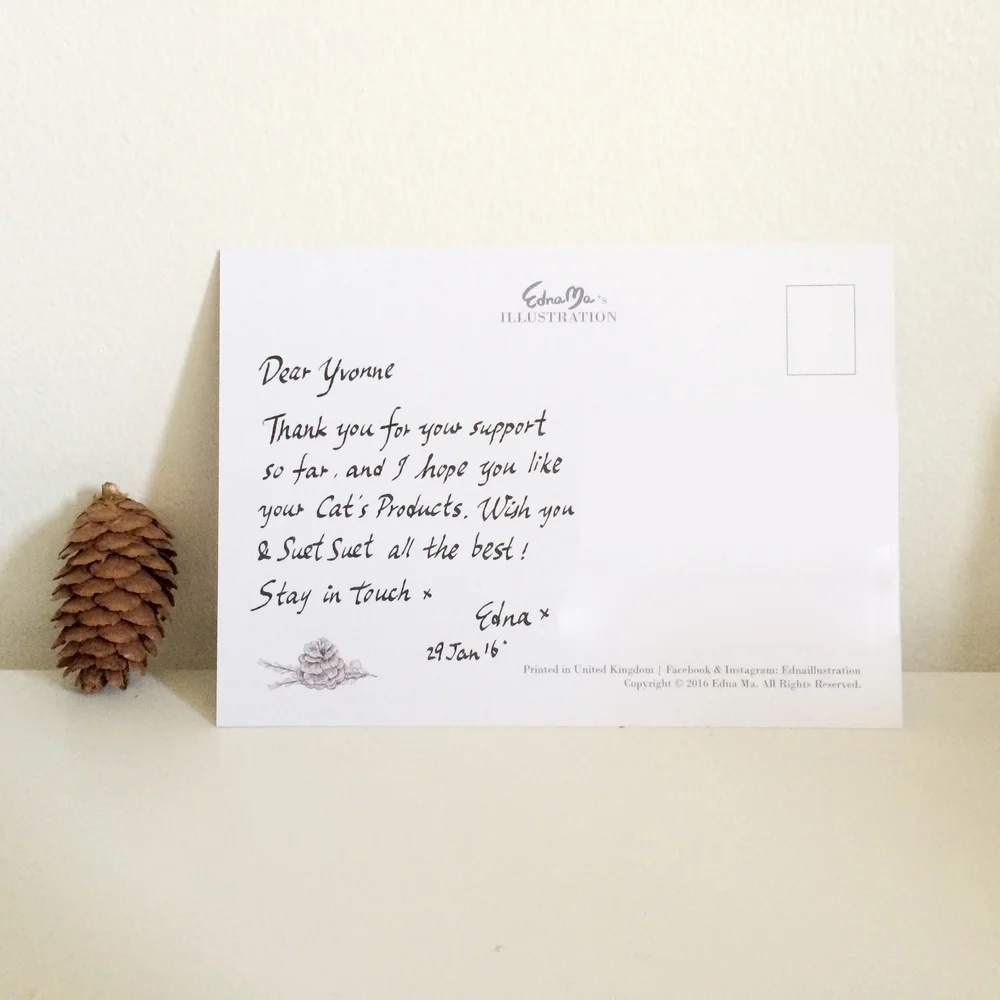 Edna Ma's
ILLUSTRATION
Dear Yvonne
Thank you for your support
so far, and I hope you like
your Cat's Products. Wish you
& Suet Suet all the best!
Stay in touch x
Edna x
29 Jan '16
Printed in United Kingdom | Facebook & Instagram: Ednaillustration
Copyright © 2016 Edna Ma. All Rights Reserved.